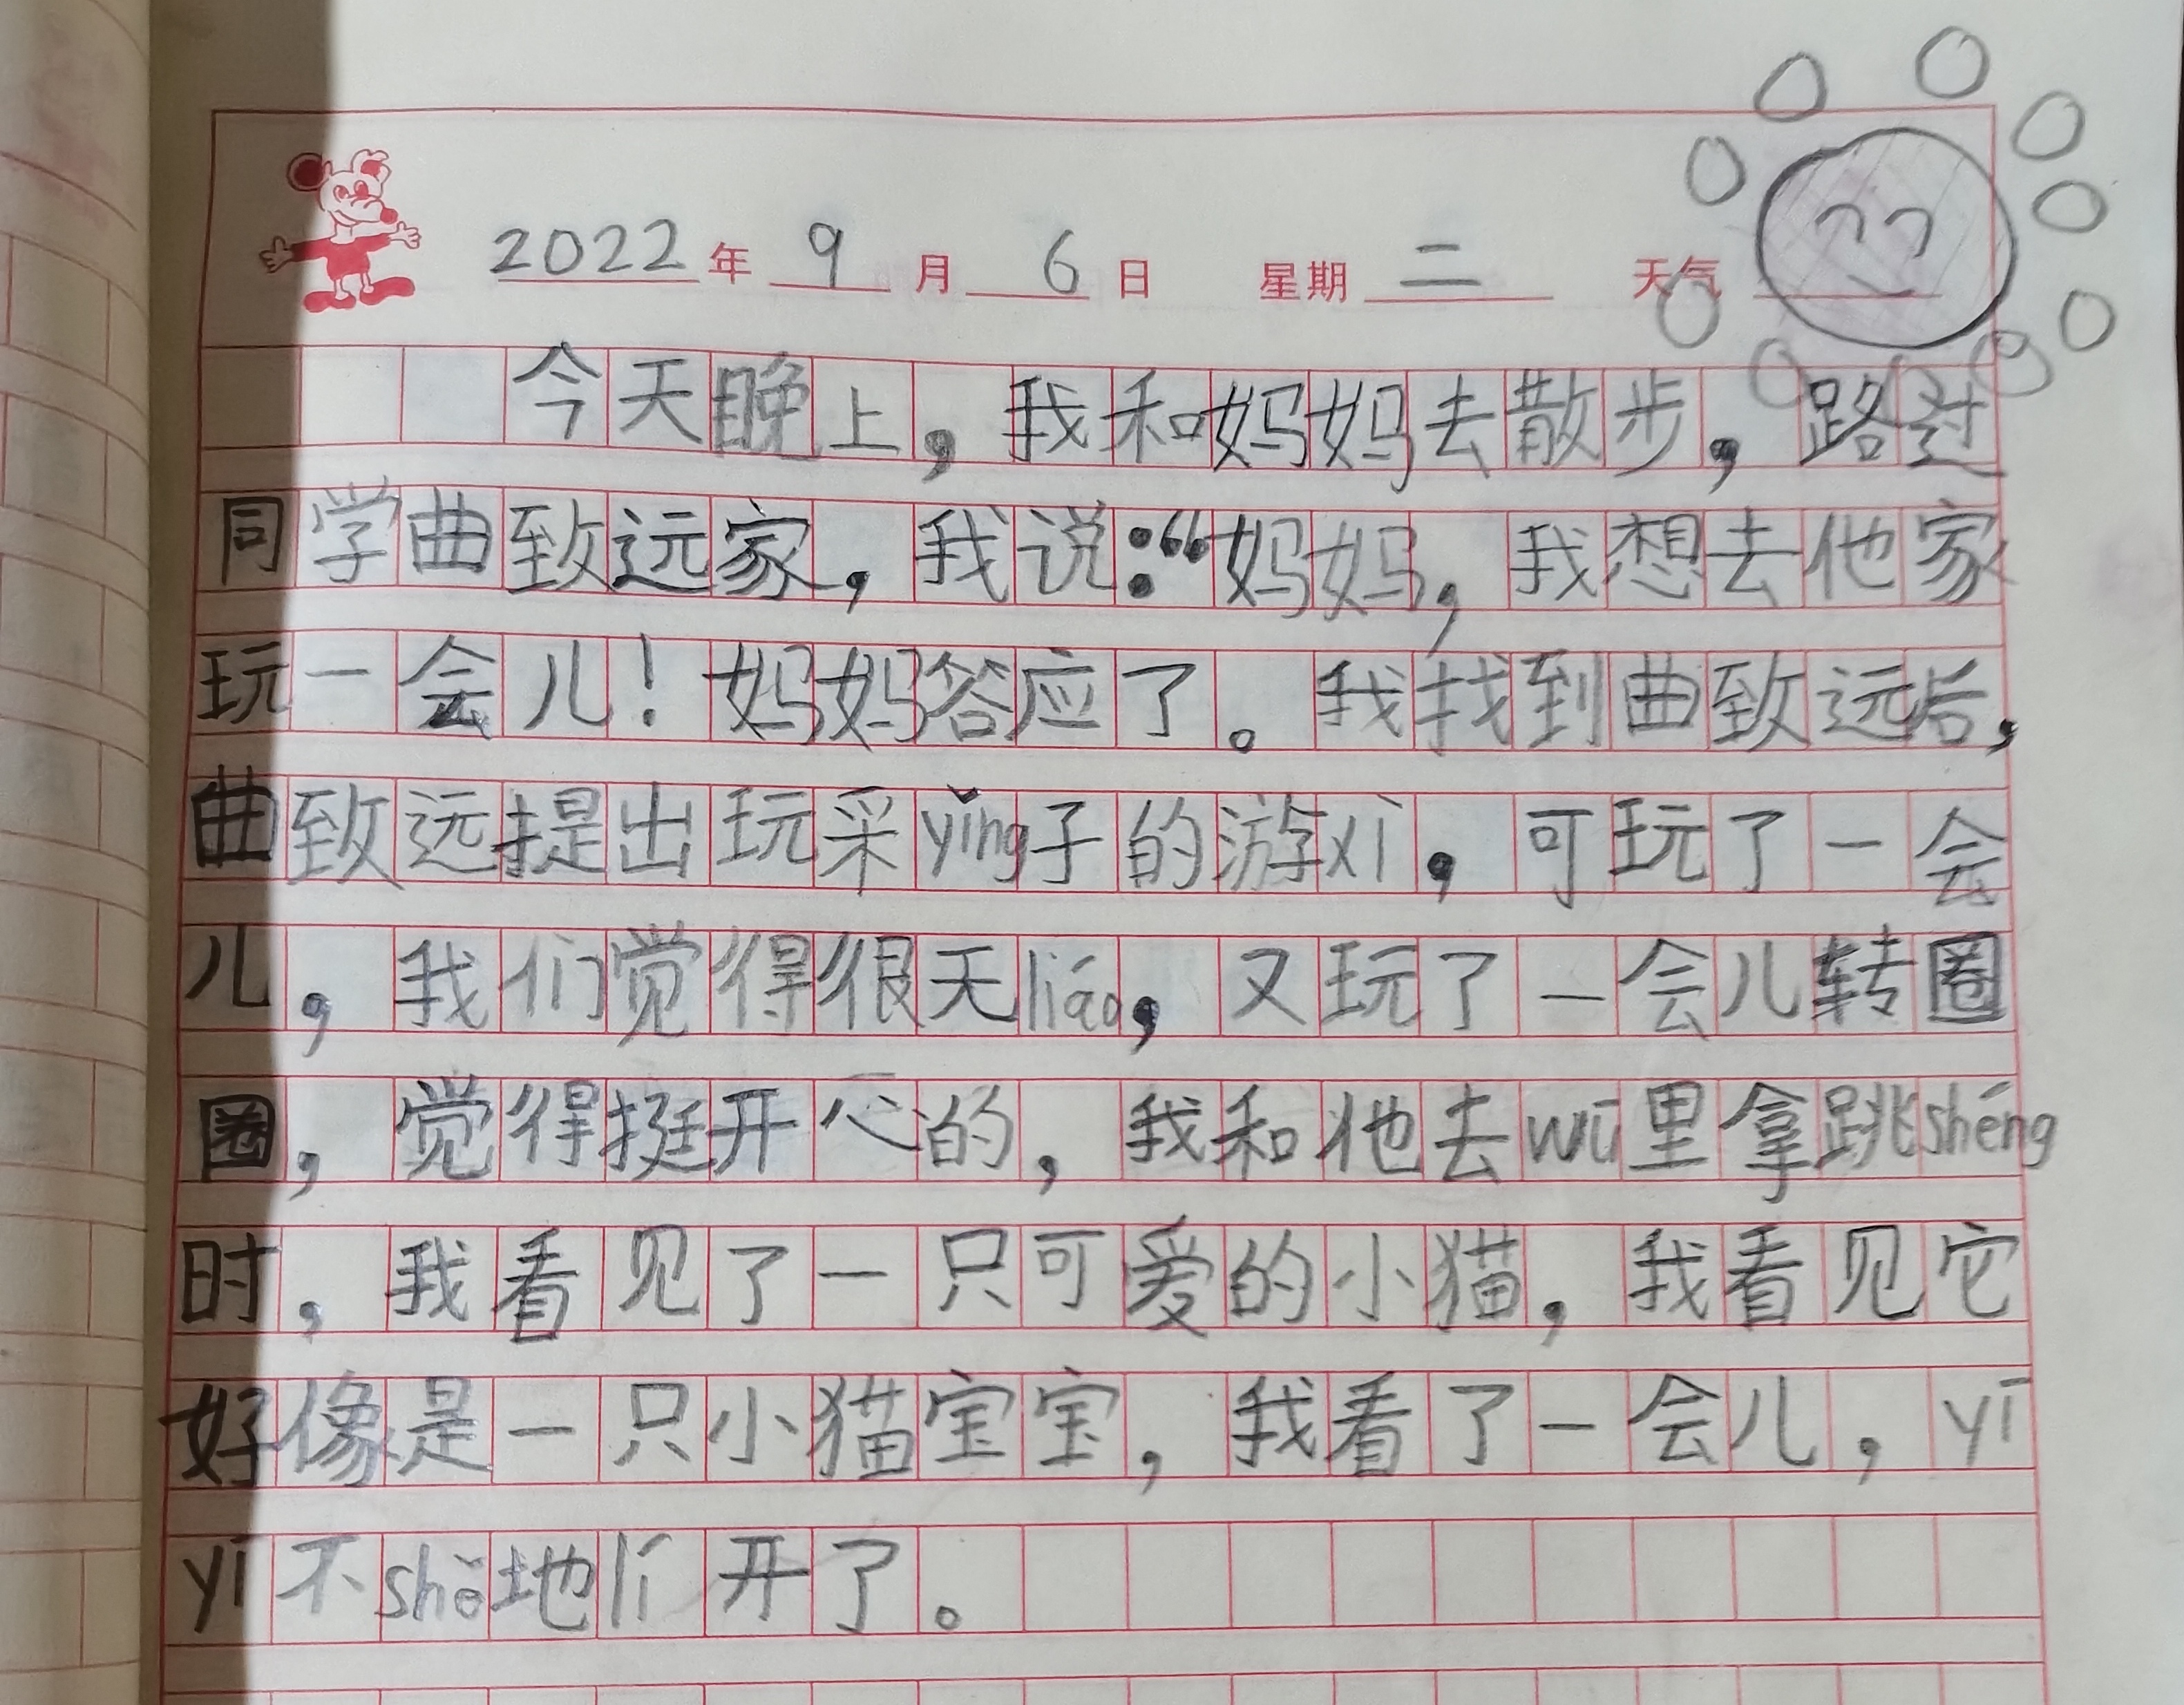 2022年9月6日 星期二 天气
今天晚上，我和妈妈去散步，路过
同学曲致远家，我说：“妈妈，我想去他家
玩一会儿！妈妈答应了。我找到曲致远后，
曲致远提出玩采yǐng子的游xì，可玩了一会
儿，我们觉得很无liáo，又玩了一会儿转圈
圈，觉得挺开心的，我和他去wū里拿跳shéng
时，我看见了一只可爱的小猫，我看见它
好像是一只小猫宝宝，我看了一会儿，yī
yī不shě地lí开了。